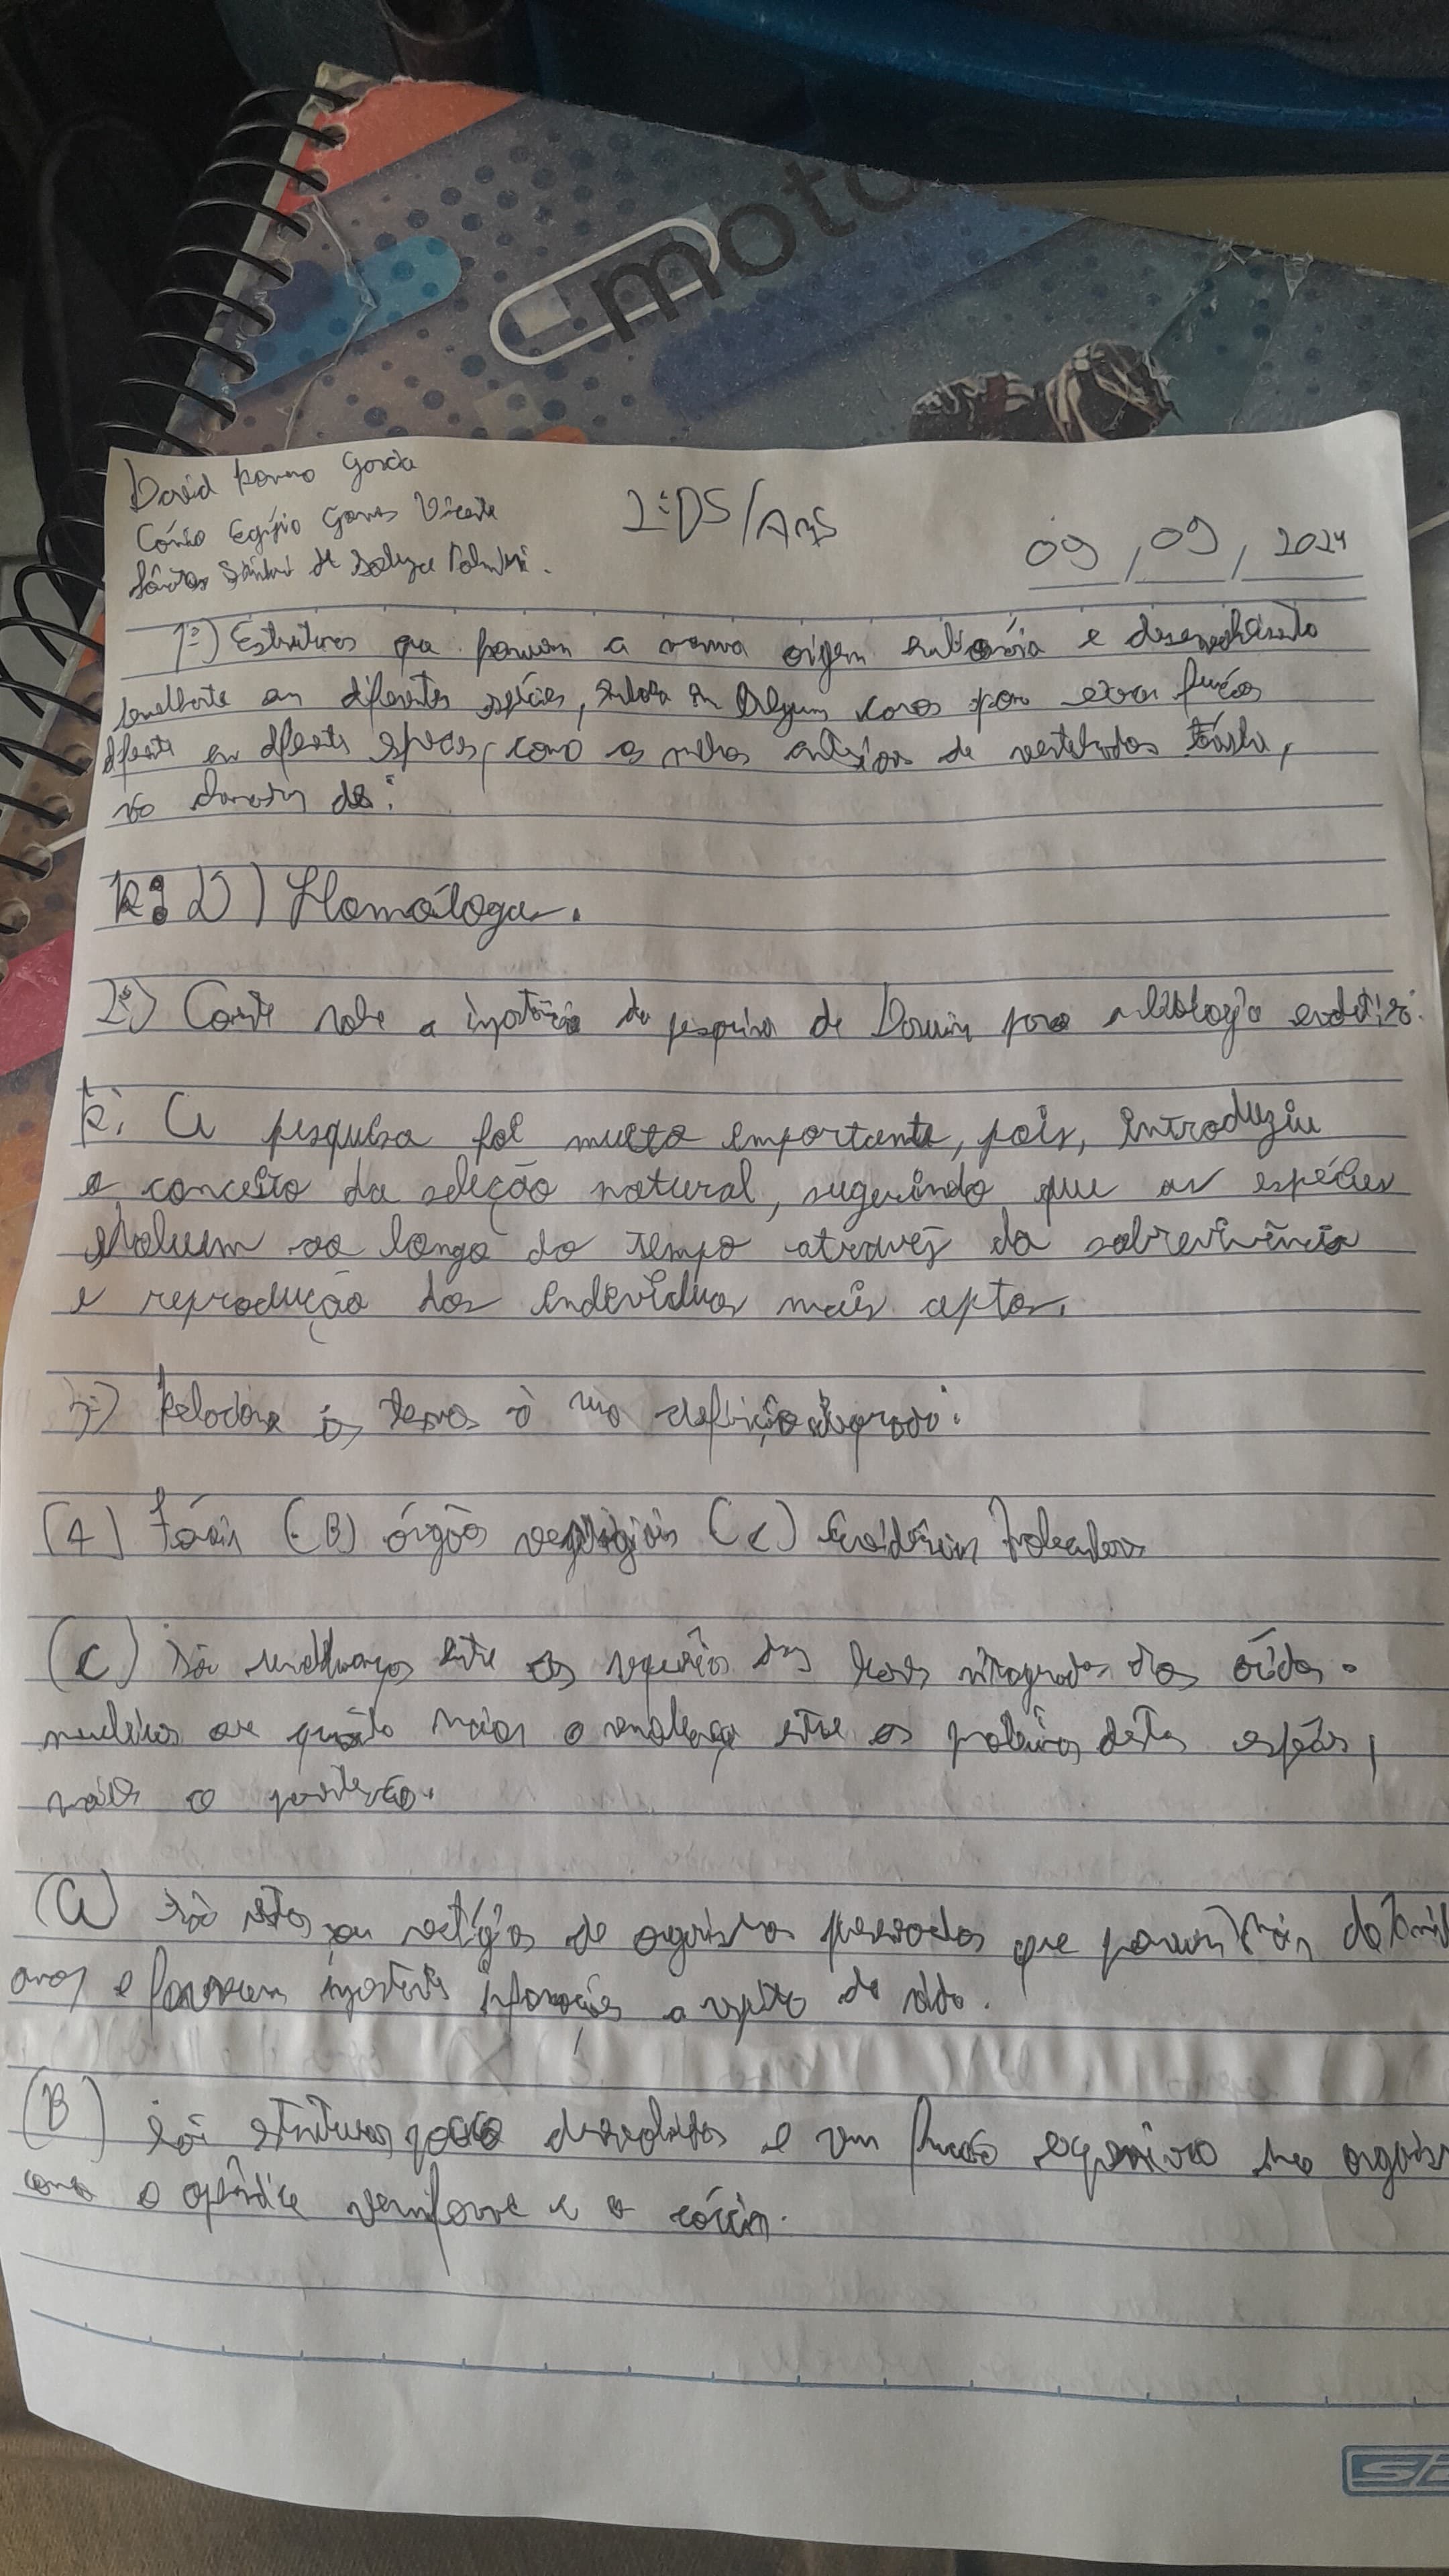 moto
David Garcia
Cássio Egípio Gomes Vicente
2ºDS/AMS
09, 09, 2024
1º) Estruturas que possuem a mesma origem embrionária e desenvolvimento
semelhante em diferentes espécies, embora em alguns casos possam exercer funções
diferente em diferente espécies, como os membros anteriores de vertebrados
são chamadas de:
R: D) Homóloga.
2º) Comente sobre a importância da pesquisa de Darwin para a biologia evolutiva.
R: A pesquisa foi muito importante, pois, introduziu
o conceito da seleção natural, sugerindo que as espécies
evoluem ao longo do tempo através da sobrevivência
e reprodução dos indivíduos mais aptos.
3º) Relacione os termos à sua definição
(A) Fósseis (B) órgãos vestigiais (C) Evidências Moleculares
(C) São semelhanças entre as sequências das bases nitrogenadas dos ácidos
nucleicos ou quanto maior a semelhança entre as proteínas destas espécies,
mais o
(A) São restos ou vestígios de organismos preservados que possuem mais de mil
anos e fornecem importante informações a respeito da vida.
(B) São estruturas pouco desenvolvidas e sem função expressiva no
como o apêndice vermiforme e o cóccix.